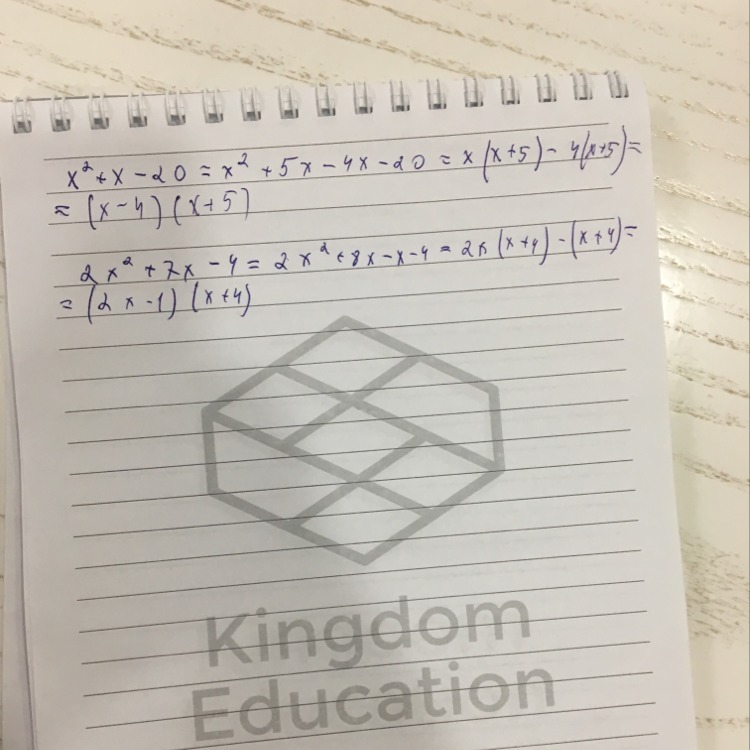 x² + x - 20 = x² + 5x - 4x - 20 = x(x+5) - 4(x+5) =
= (x-4)(x+5)
2x² + 7x - 4 = 2x² + 8x - x - 4 = 2x(x+4) - (x+4) =
= (2x-1)(x+4)
Kingdom
Education